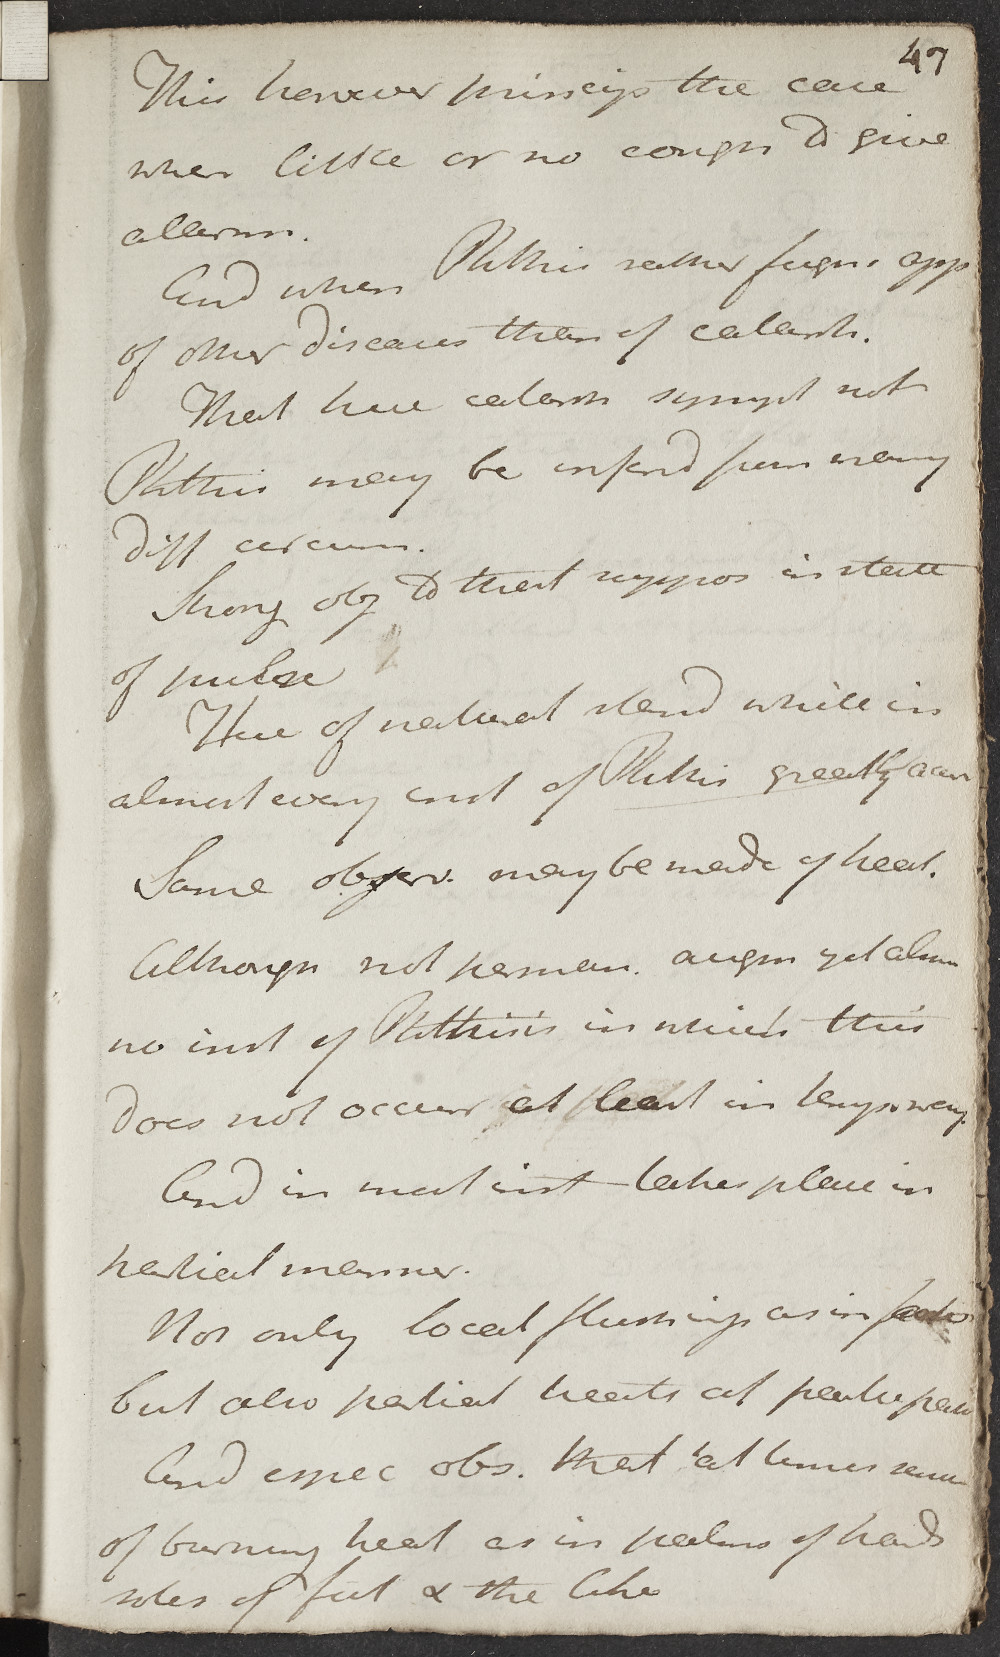 47
This however princips the case
when little or no cough to give
allarm.
And when Phthis rather fugns app
of other diseases than of catarrh.
That here catarrh sympt not
Phthisis may be inferd from many
diff circum.
Strong obj to that suppos in state
of pulse
Here of natural stand while in
almost every inst of Phthis greatly accn
Same observ. may be made of heat.
Although not perman. augm yet almn
no inst of Phthisis in which this
does not occur at least in tempo way.
And in most inst takes place in
partial manner.
Not only local flushings as in face
but also partial heats at particu parts
And espec obs. that at times sense
of burning heat as in palms of hands
soles of feet & the like